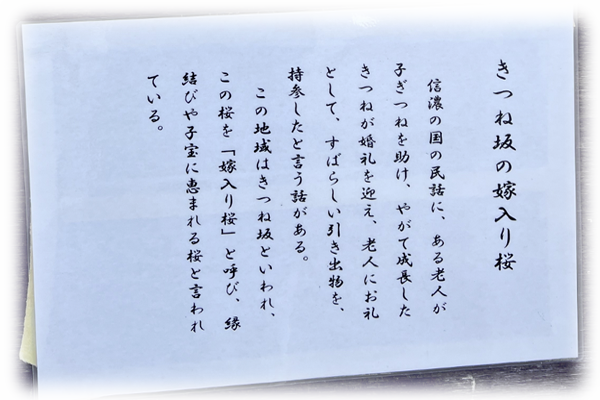 きつね坂の嫁入り桜
信濃の国の民話に、ある老人が
子ぎつねを助け、やがて成長した
きつねが婚礼を迎え、老人にお礼
として、すばらしい引き出物を、
持参したと言う話がある。
この地域はきつね坂といわれ、
この桜を「嫁入り桜」と呼び、縁
結びや子宝に恵まれる桜と言われ
ている。